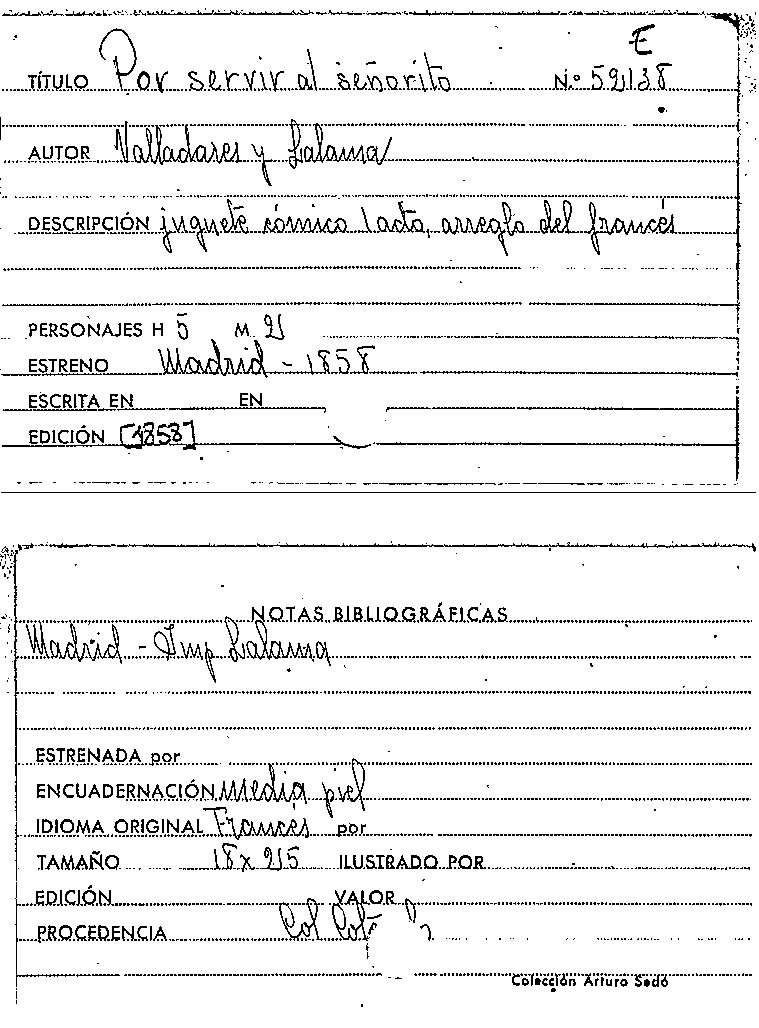 E
TÍTULO Por servir al señorito N.º 5238
AUTOR Valladares y Lalama
DESCRIPCIÓN juguete cómico 1 acto, arreglo del francés
PERSONAJES H 5 M 2
ESTRENO Madrid - 1858
ESCRITA EN EN
EDICIÓN [1858]
NOTAS BIBLIOGRÁFICAS
Madrid - Imp Lalama
ESTRENADA por
ENCUADERNACIÓN media piel
IDIOMA ORIGINAL Frances por
TAMAÑO 18 x 25 ILUSTRADO POR
EDICIÓN VALOR
PROCEDENCIA Col
Colección Arturo Sedó